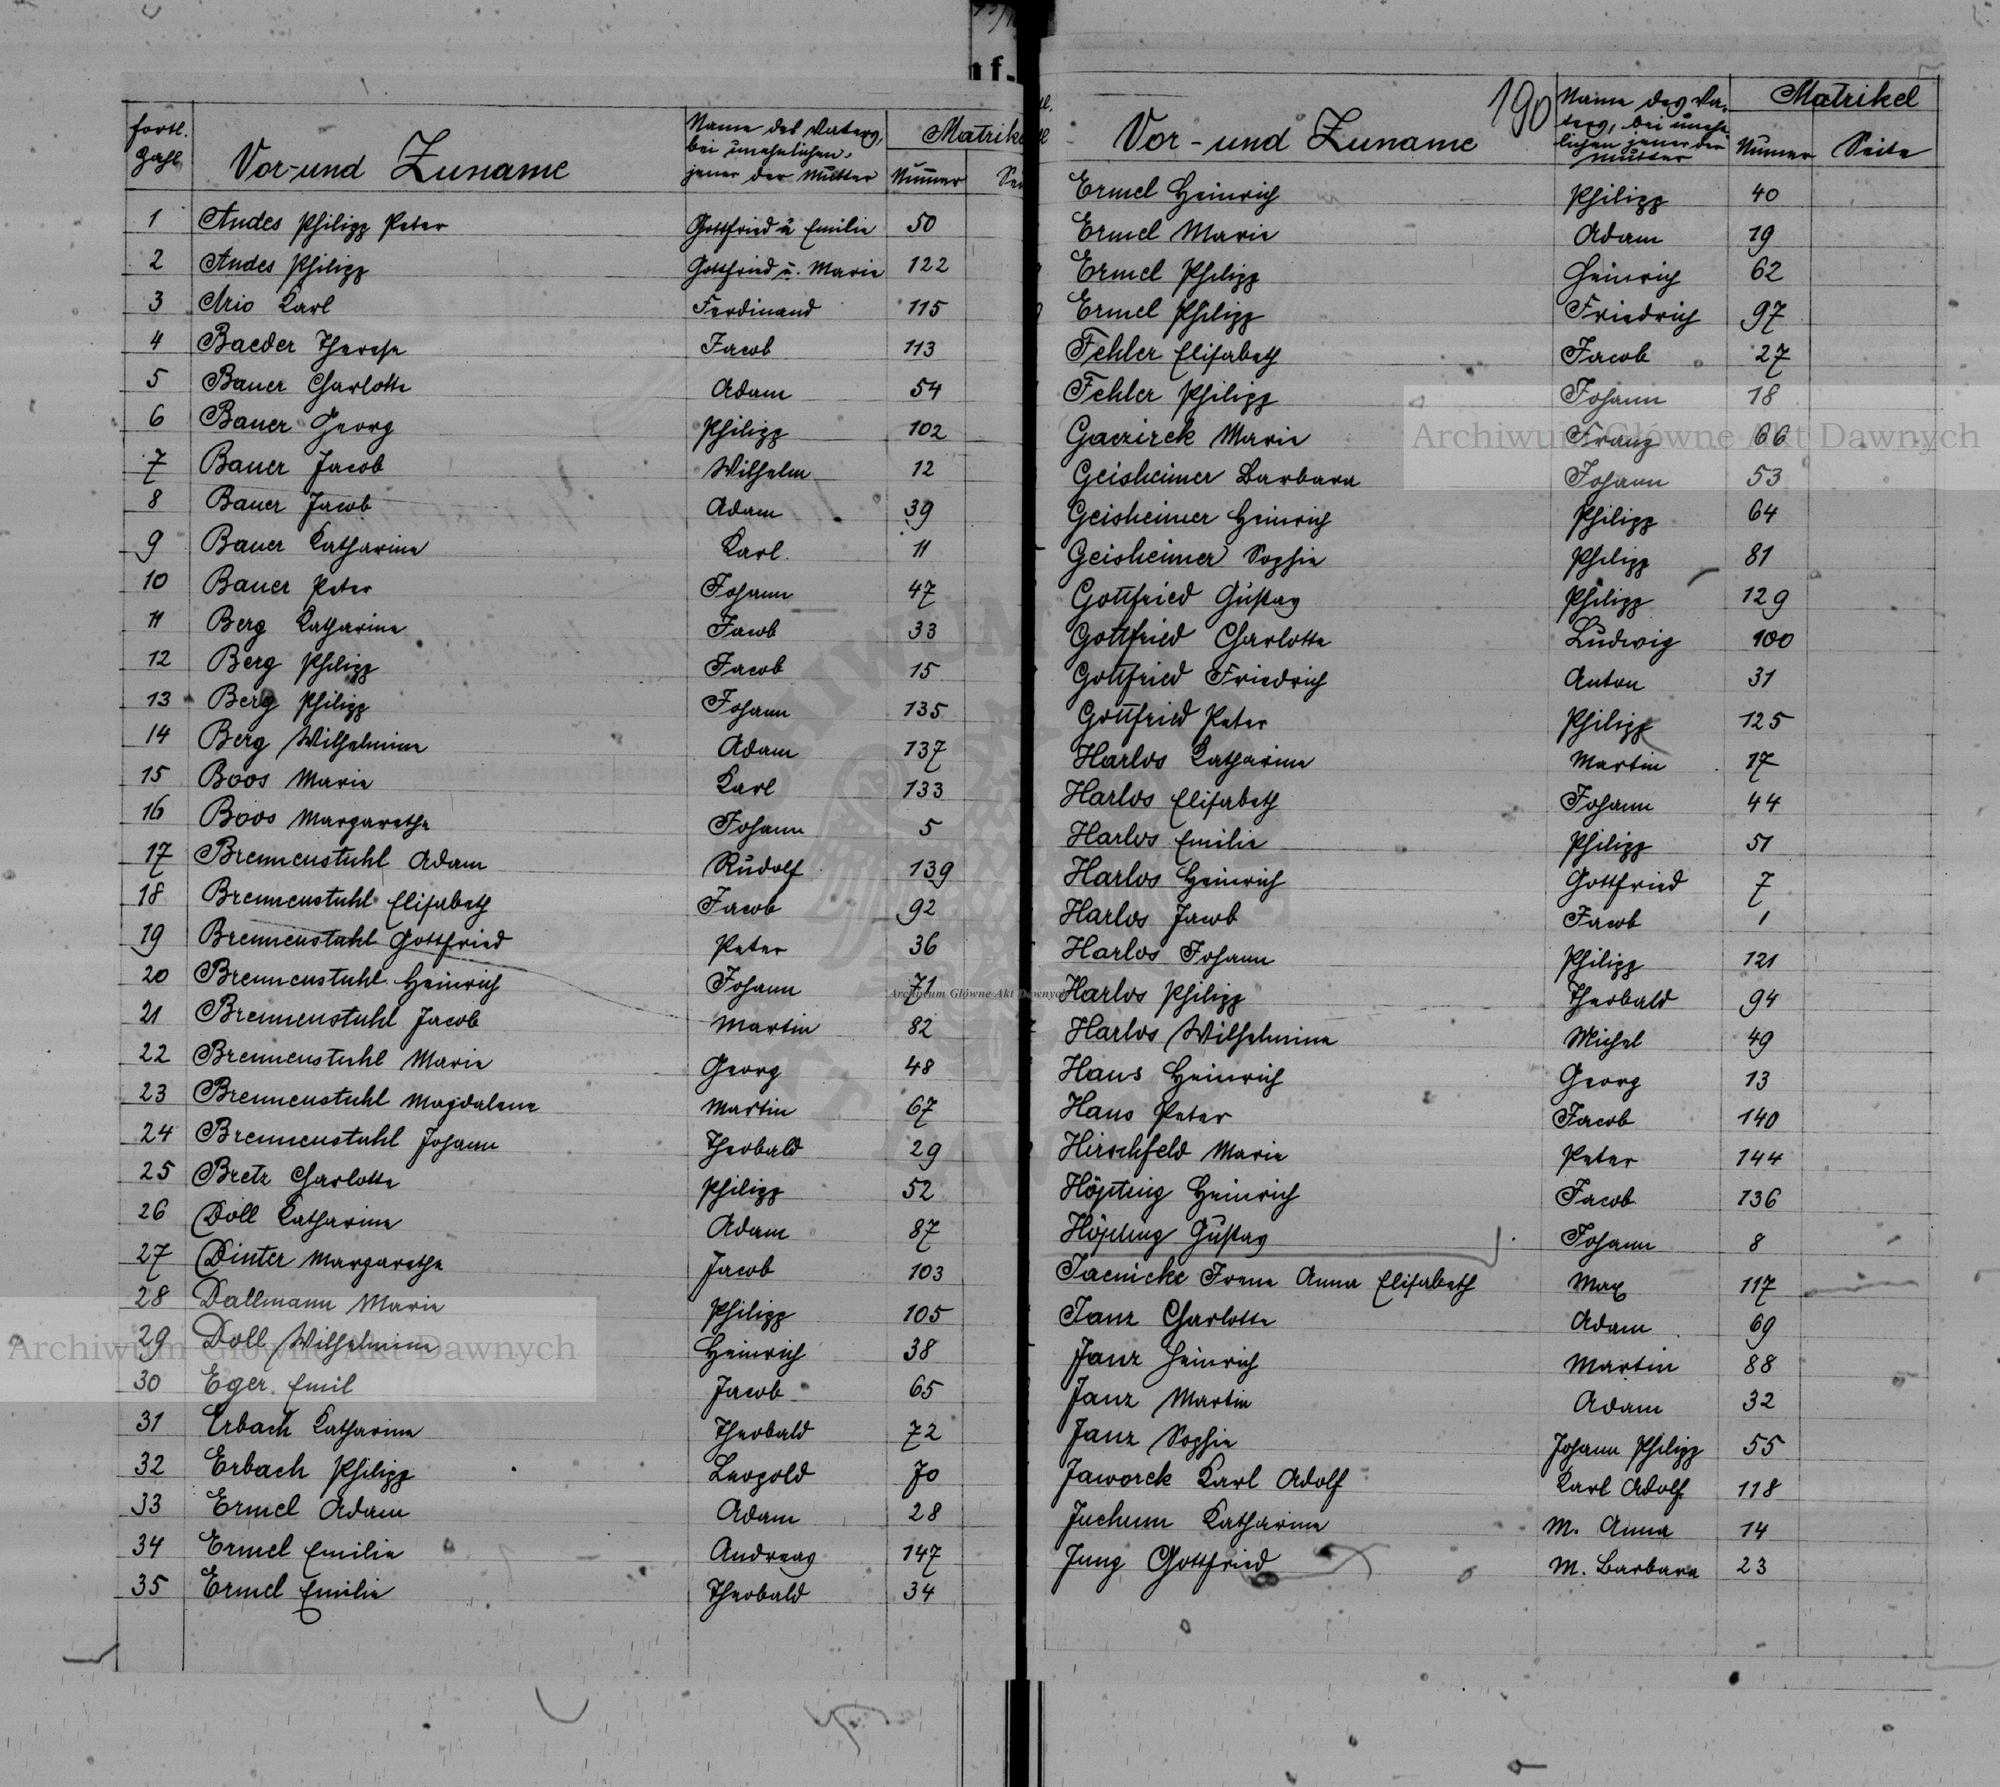 fortl. Zahl
Vor- und Zuname
Name des Vaters, bei unehelichen, jener der Mutter
Matrikel
Nummer
1 Andes Philipp Peter Gottfried u Emilie 50
2 Andes Philipp Gottfried u. Marie 122
3 Ario Karl Ferdinand 115
4 Baeder Therese Jacob 113
5 Bauer Charlotte Adam 54
6 Bauer Georg Philipp 102
7 Bauer Jacob Wilhelm 12
8 Bauer Jacob Adam 39
9 Bauer Katharine Karl 11
10 Bauer Peter Johann 47
11 Berg Katharine Jacob 33
12 Berg Philipp Jacob 15
13 Berg Philipp Johann 135
14 Berg Wilhelmine Adam 137
15 Boos Marie Karl 133
16 Boos Margarethe Johann 5
17 Brennenstuhl Adam Rudolf 139
18 Brennenstuhl Elisabeth Jacob 92
19 Brennenstuhl Gottfried Peter 36
20 Brennenstuhl Heinrich Johann 71
21 Brennenstuhl Jacob Martin 82
22 Brennenstuhl Marie Georg 48
23 Brennenstuhl Magdalene Martin 67
24 Brennenstuhl Johann Theobald 29
25 Bretz Charlotte Philipp 52
26 Doll Katharine Adam 87
27 Dinter Margarethe Jacob 103
28 Dallmann Marie Philipp 105
29 Doll Wilhelmine Heinrich 38
30 Eger Emil Jacob 65
31 Erbach Katharine Theobald 72
32 Erbach Philipp Leopold 70
33 Ermel Adam Adam 28
34 Ermel Emilie Andreas 147
35 Ermel Emilie Theobald 34
190
Vor- und Zuname
Name des Vaters, bei unehelichen jener der Mutter
Matrikel
Numer Seite
Ermel Heinrich Philipp 40
Ermel Marie Adam 19
Ermel Philipp Heinrich 62
Ermel Philipp Friedrich 97
Fehler Elisabeth Jacob 27
Fehler Philipp Johann 18
Gaczirek Marie Franz 66
Geisheimer Barbara Johann 53
Geisheimer Heinrich Philipp 64
Geisheimer Sophie Philipp 81
Gottfried Gustav Philipp 129
Gottfried Charlotte Ludwig 100
Gottfried Friedrich Anton 31
Gottfried Peter Philipp 125
Harlos Katharine Martin 17
Harlos Elisabeth Johann 44
Harlos Emilie Philipp 51
Harlos Heinrich Gottfried 7
Harlos Jacob Jacob 1
Harlos Johann Philipp 121
Harlos Philipp Theobald 94
Harlos Wilhelmine Michel 49
Haus Heinrich Georg 13
Haus Peter Jacob 140
Hirschfeld Marie Peter 144
Höpting Heinrich Jacob 136
Höpting Gustav Johann 8
Jaenicke Irene Anna Elisabeth Max 117
Janz Charlotte Adam 69
Janz Heinrich Martin 88
Janz Martin Adam 32
Janz Sophie Johann Philipp 55
Jaworek Karl Adolf Karl Adolf 118
Juchum Katharine M. Anna 14
Jung Gottfried M. Barbara 23
Archiwum Główne Akt Dawnych
Archiwum Główne Akt Dawnych
Archiwum Główne Akt Dawnych